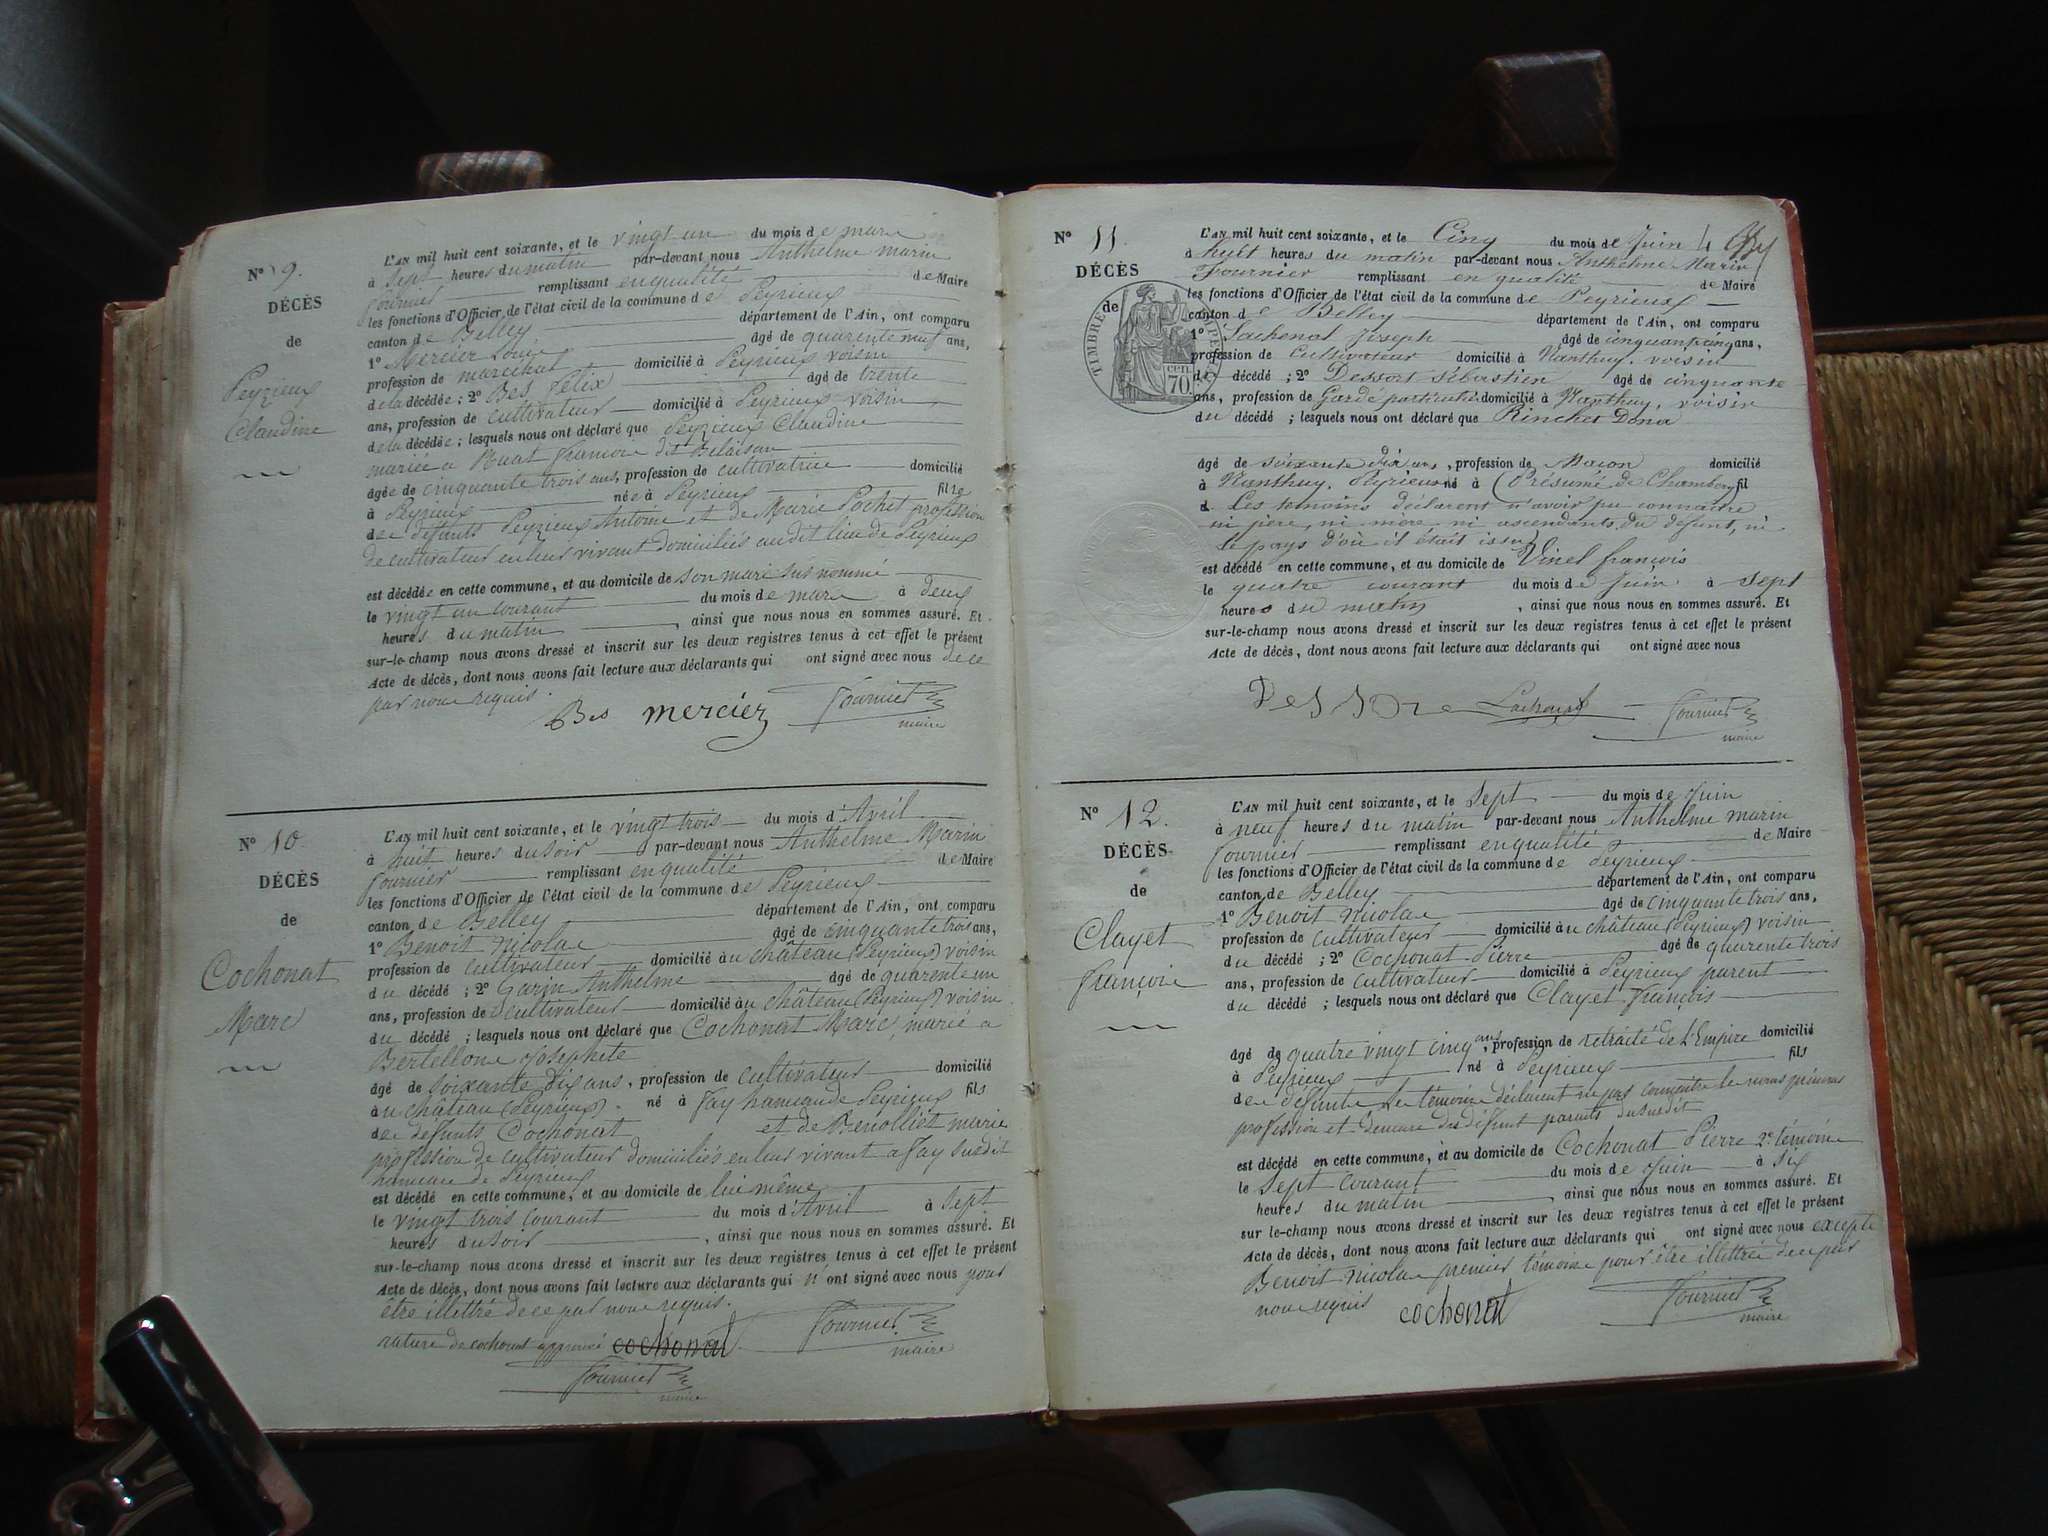 N° 9.
DÉCÈS
de
Peyrieux
Claudine
L'AN mil huit cent soixante, et le vingt un du mois de mars
à sept heures du matin par-devant nous Anthelme marin
fournier remplissant en qualité de Maire
les fonctions d'Officier de l'état civil de la commune de Peyrieux
canton de Belley département de l'Ain, ont comparu
1° Mercier Louis âgé de quarente neuf ans,
profession de marechal domicilié à Peyrieux voisin
de la décédée ; 2° Bes félix âgé de trente
ans, profession de cultivateur domicilié à Peyrieux voisin
de la décédée ; lesquels nous ont déclaré que Peyrieux Claudine
mariée a Ruat francois dit
âgée de cinquante trois ans, profession de cultivatrice domicilié
à Peyrieux née à Peyrieux fille
des défunts Peyrieux Antoine et de Marie Pochet profession
de cultivateur en leur vivant domiciliés audit lieu de Peyrieux
est décédée en cette commune, et au domicile de son mari sus nommé
le vingt un courant du mois de mars à deux
heures du matin , ainsi que nous nous en sommes assuré. Et
sur-le-champ nous avons dressé et inscrit sur les deux registres tenus à cet effet le présent
Acte de décès, dont nous avons fait lecture aux déclarants qui ont signé avec nous de ce
par nous requis.
Bes mercier fournier
maire
N° 10.
DÉCÈS
de
Cochonat
Marc
L'AN mil huit cent soixante, et le vingt trois du mois d'Avril
à huit heures du soir par-devant nous Anthelme Marin
fournier remplissant en qualité de Maire
les fonctions d'Officier de l'état civil de la commune de Peyrieux
canton de Belley département de l'Ain, ont comparu
1° Benoit Nicolas âgé de cinquante trois ans,
profession de cultivateur domicilié au château (Peyrieux) voisin
du décédé ; 2° Garin Anthelme âgé de quarente un
ans, profession de cultivateur domicilié au château (Peyrieux) voisin
du décédé ; lesquels nous ont déclaré que Cochonat Marc, marié a
Bertellone Josephete
âgé de soixante dix ans, profession de cultivateur domicilié
au château (Peyrieux). né à Fay hameau de Peyrieux fils
des defunts Cochonat et de Benolliet marie
profession de cultivateur domiciliés en leur vivant a Fay susdit
hameau de Peyrieux
est décédé en cette commune, et au domicile de lui même
le vingt trois courant du mois d'Avril à sept
heures du soir , ainsi que nous nous en sommes assuré. Et
sur-le-champ nous avons dressé et inscrit sur les deux registres tenus à cet effet le présent
Acte de décès, dont nous avons fait lecture aux déclarants qui n'ont signé avec nous pour
être illettré de ce par nous requis.
nature de cochonat approuvé cochonat fournier
maire
fournier
maire
N° 11.
DÉCÈS
de
TIMBRE IMPÉRIAL
70 cen.
L'AN mil huit cent soixante, et le Cinq du mois de Juin
à huit heures du matin par-devant nous Anthelme Marin
Fournier remplissant en qualité de Maire
les fonctions d'Officier de l'état civil de la commune de Peyrieux
canton de Belley département de l'Ain, ont comparu
1° Lachenal Joseph âgé de cinquante cinq ans,
profession de Cultivateur domicilié à Nanthuy, voisin
du décédé ; 2° Dessort Sébastien âgé de cinquante
ans, profession de Garde particulier domicilié à Nanthuy, voisin
du décédé ; lesquels nous ont déclaré que Rinchet Dona
âgé de soixante dix ans, profession de Maçon domicilié
à Nanthuy, Peyrieux né à (Présumé de Chambery) fil
d Les temoins déclarent n'avoir pu connaitre
ni père, ni mere, ni ascendants du defunt, ni
le pays d'où il était issu
est décédé en cette commune, et au domicile de Vinel françois
le quatre courant du mois de Juin à sept
heures du matin , ainsi que nous nous en sommes assuré. Et
sur-le-champ nous avons dressé et inscrit sur les deux registres tenus à cet effet le présent
Acte de décès, dont nous avons fait lecture aux déclarants qui ont signé avec nous
Lachenal fournier
maire
N° 12.
DÉCÈS
de
Clayet
françois
L'AN mil huit cent soixante, et le Sept du mois de Juin
à neuf heures du matin par-devant nous Anthelme marin
fournier remplissant en qualité de Maire
les fonctions d'Officier de l'état civil de la commune de Peyrieux
canton de Belley département de l'Ain, ont comparu
1° Benoit Nicolas âgé de cinquante trois ans,
profession de cultivateur domicilié au château (Peyrieux) voisin
du décédé ; 2° Cochonat Pierre âgé de quarente trois
ans, profession de cultivateur domicilié à Peyrieux parent
du décédé ; lesquels nous ont déclaré que Clayet françois
âgé de quatre vingt cinq ans, profession de retraité de l'Empire domicilié
à Peyrieux né à Peyrieux fils
des défunts les témoins déclarent ne pas connaître les noms prénoms
profession et demeure des défunt parents du susdit
est décédé en cette commune, et au domicile de Cochonat Pierre 2e témoins
le Sept courant du mois de Juin à six
heures du matin , ainsi que nous nous en sommes assuré. Et
sur le-champ nous avons dressé et inscrit sur les deux registres tenus à cet effet le présent
Acte de décès, dont nous avons fait lecture aux déclarants qui ont signé avec nous excepté
Benoit Nicolas premier témoins pour être illettré de ce par
nous requis cochonat fournier
maire